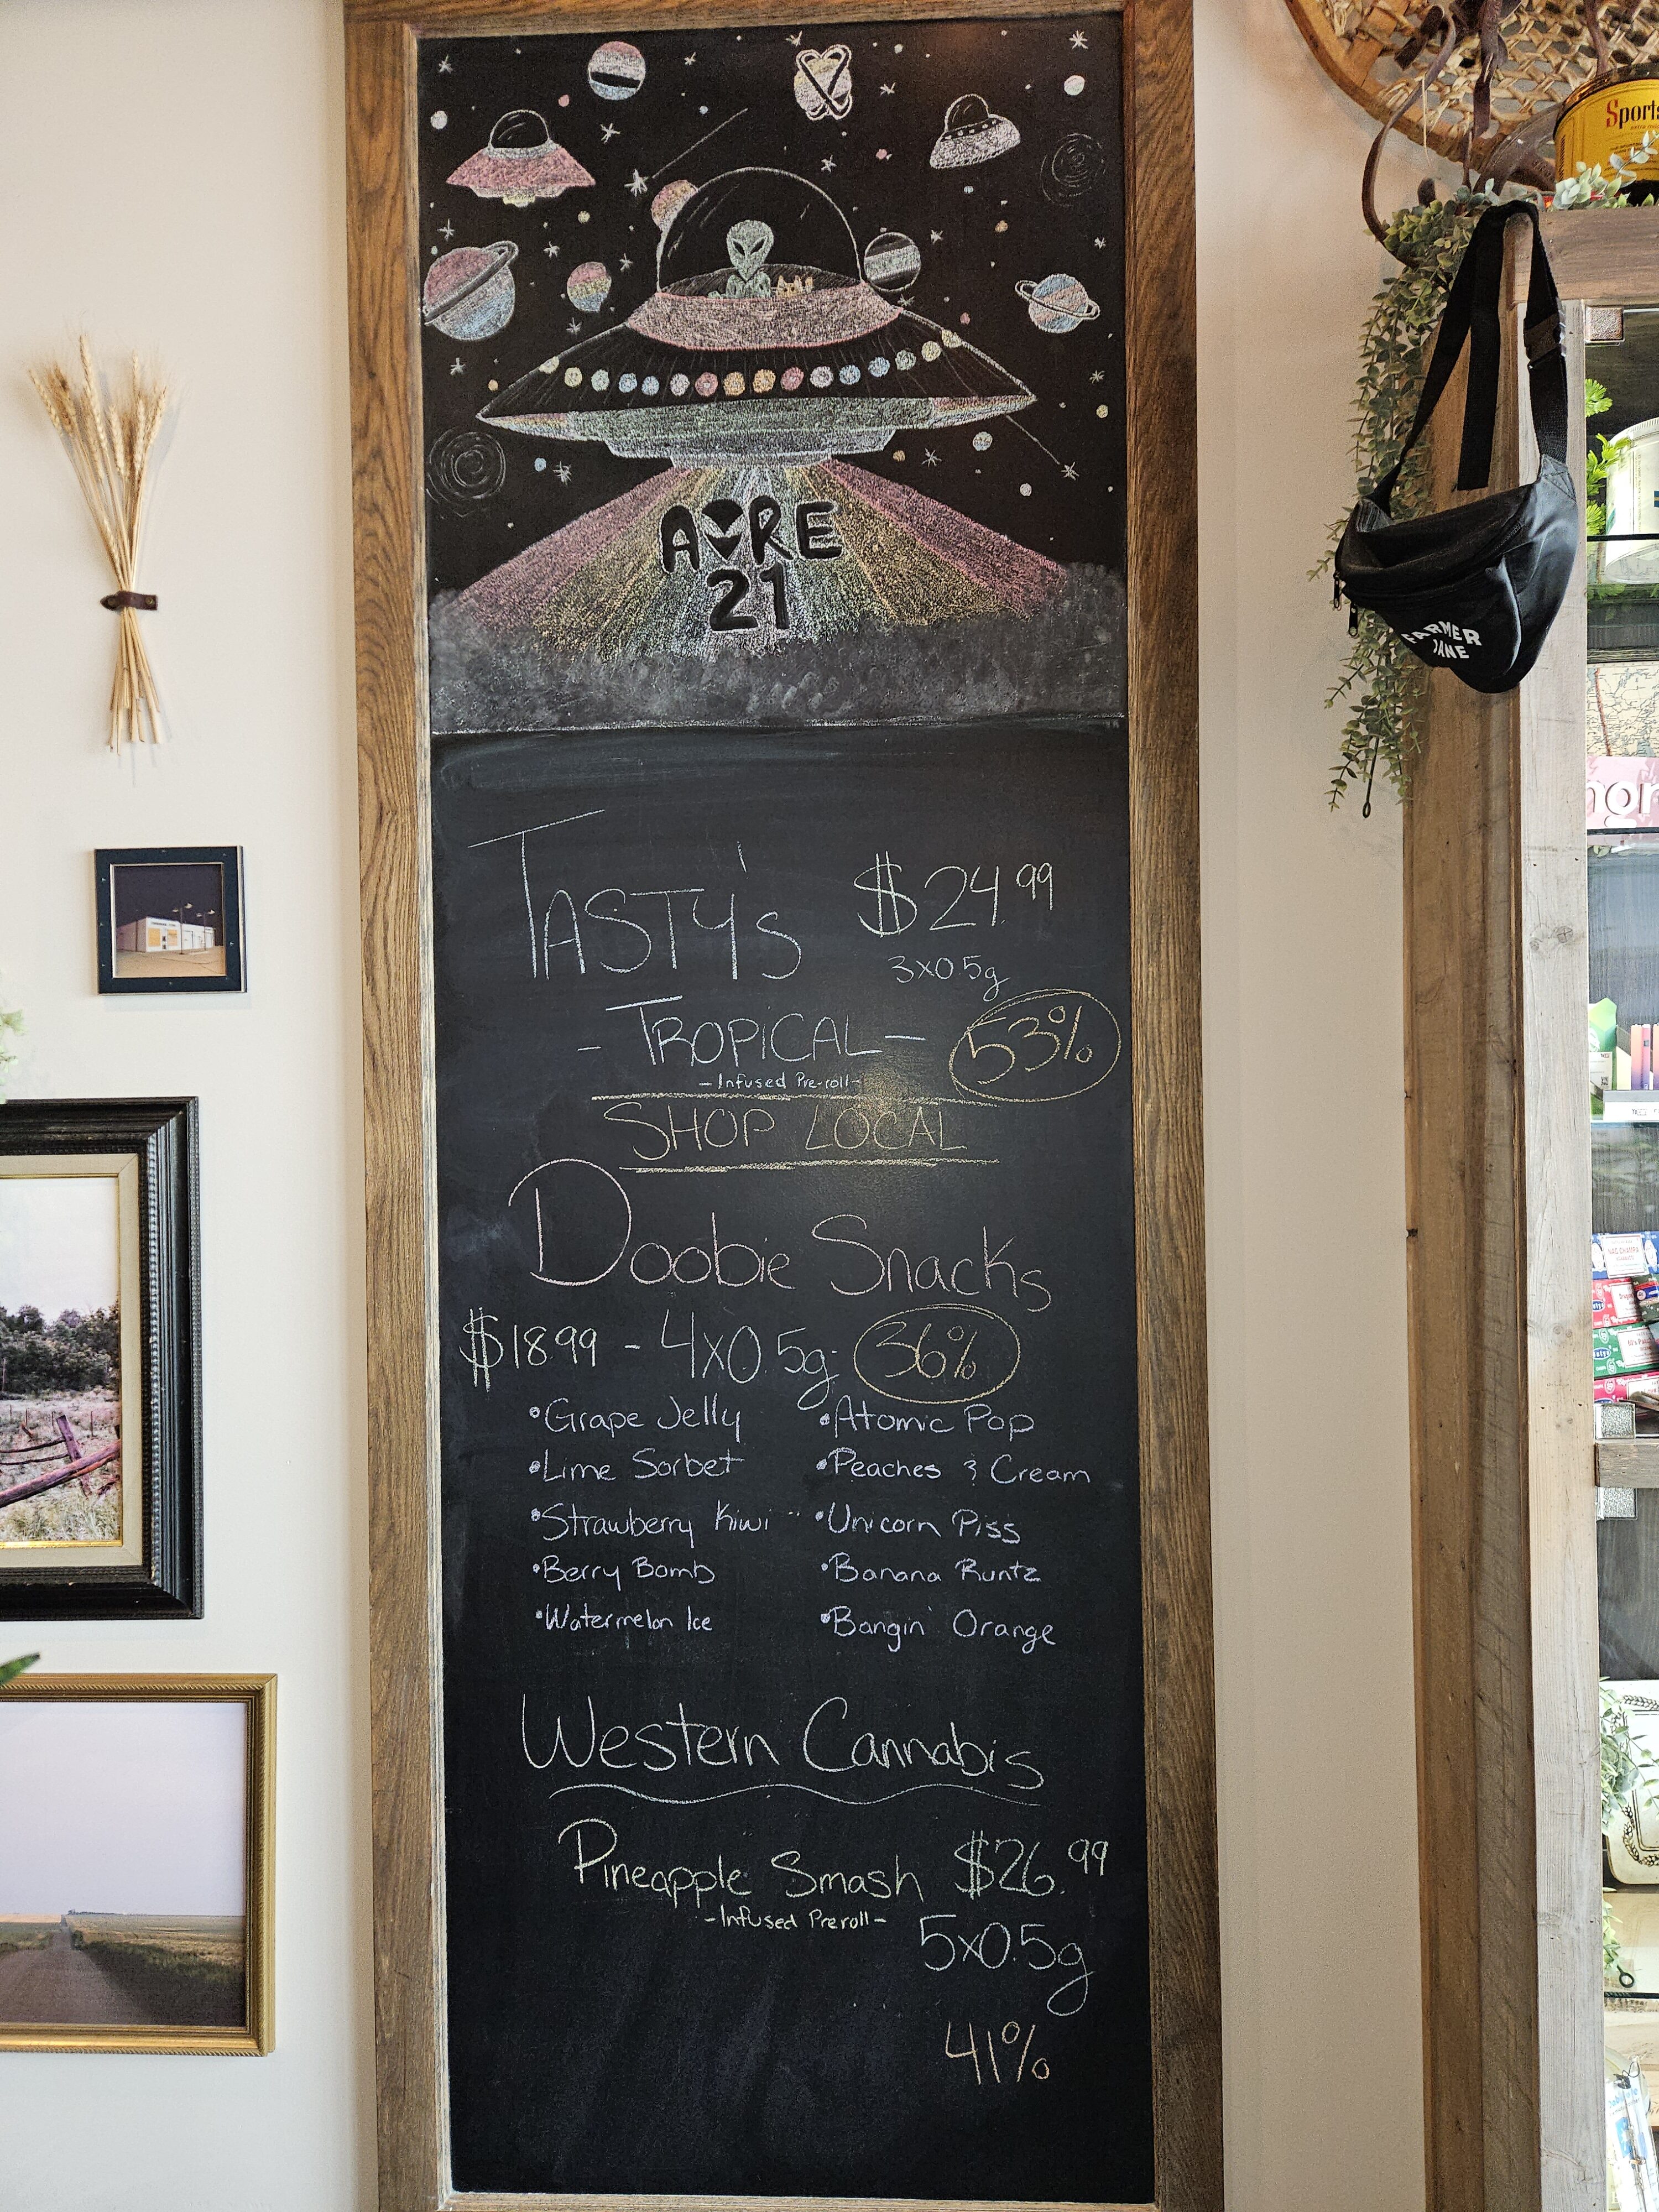 A RE
21
TASTY's $24.99
3x0.5g
- TROPICAL -
53%
- Infused Pre-roll -
SHOP LOCAL
Doobie Snacks
$18.99 - 4x0.5g- 36%
•Grape Jelly •Atomic Pop
•Lime Sorbet •Peaches & Cream
•Strawberry Kiwi •Unicorn Piss
•Berry Bomb •Banana Runtz
•Watermelon Ice •Bangin' Orange
Western Cannabis
Pineapple Smash $26.99
- Infused Preroll -
5x0.5g
41%
Sports
FARMER
JANE